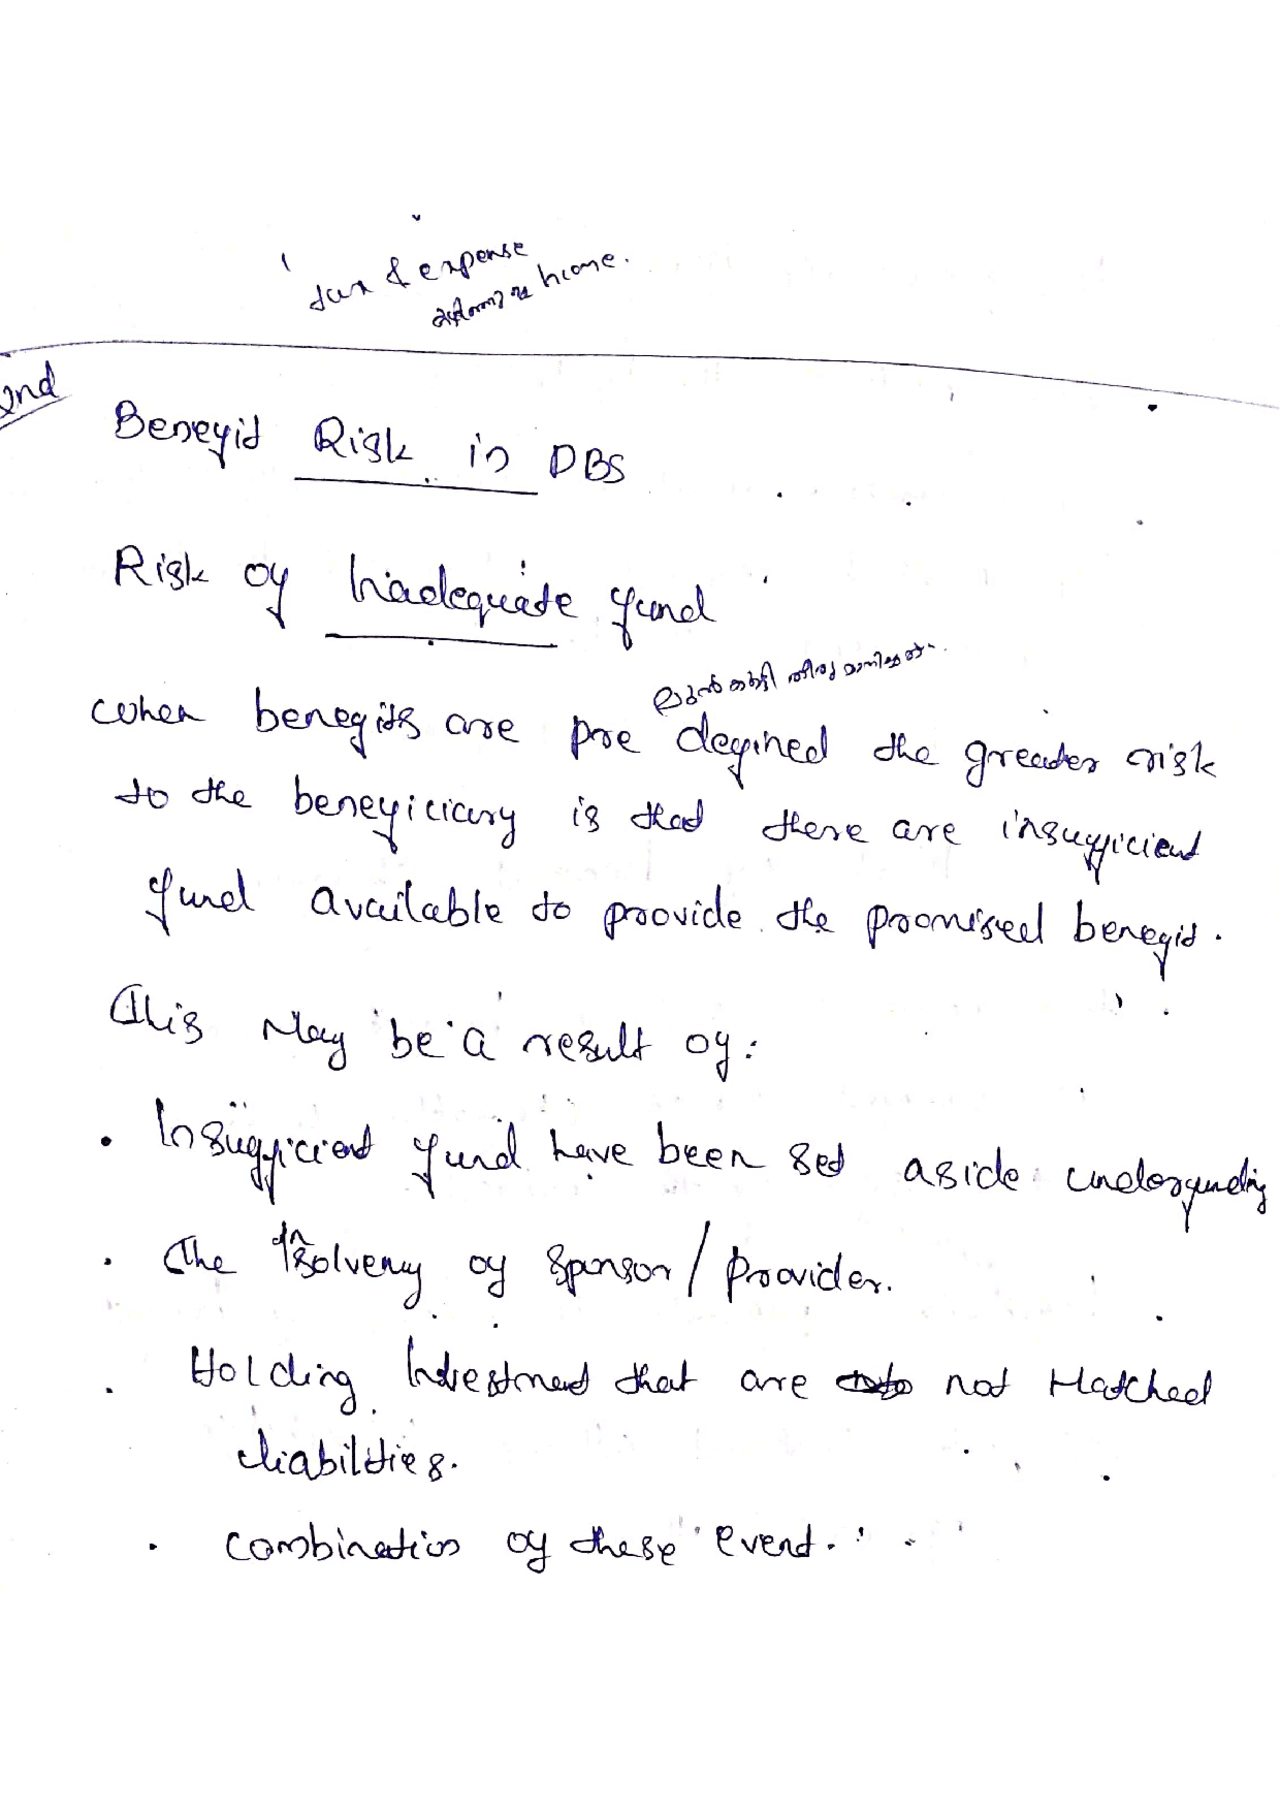 tax & expense
കഴിഞ്ഞുള്ള Income.
2nd
Benefit Risk in DBS
Risk of Inadequate fund
മുൻകൂട്ടി തീരുമാനിച്ചത്
when benefits are pre defined the greater risk
to the beneficiary is that there are insufficient
fund available to provide the promised benefit.
This May be a result of:
• Insufficient fund have been set aside underfunding
• The Insolveny of Sponsor / Provider.
• Holding Investment that are not Matched
liabilities.
• combination of these event.